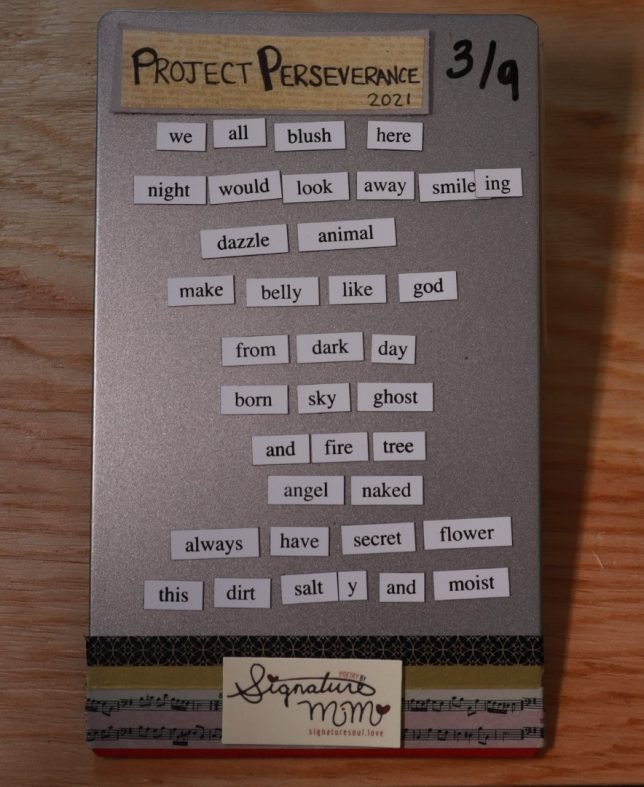 PROJECT PERSEVERANCE
2021
3/9
we all blush here
night would look away smile ing
dazzle animal
make belly like god
from dark day
born sky ghost
and fire tree
angel naked
always have secret flower
this dirt salt y and moist
POETRY BY
Signature
MiMi
signaturesoul.love